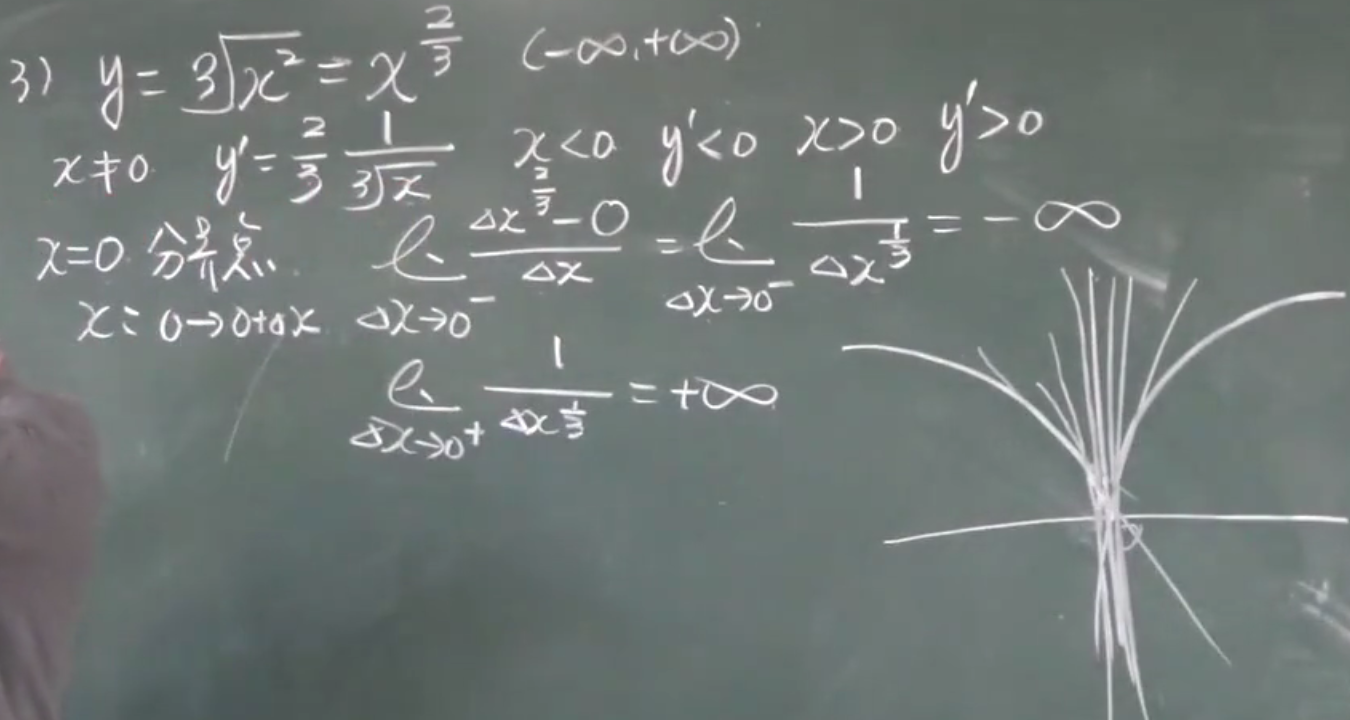 3) y = ∛x² = x^(2/3) (-∞,+∞)
x≠0 y' = 2/3 1/∛x x<0 y'<0 x>0 y'>0
x=0 分界点 l. Δx→0⁻ (Δx^(2/3) - 0)/Δx = l. Δx→0⁻ 1/Δx^(1/3) = -∞
x: 0→0+Δx
l. Δx→0⁺ 1/Δx^(1/3) = +∞